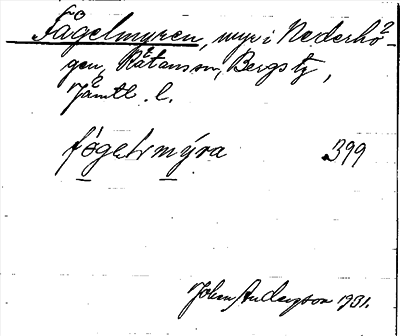 Fågelmyren, myr i Nederhö-
gen, Rätanssn, Bergs tg,
Jämtl. l.
fogelrmýra 399
John Anderzon 1931.